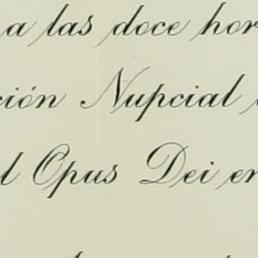 a las doce hor
ción Nupcial
l Opus Dei en